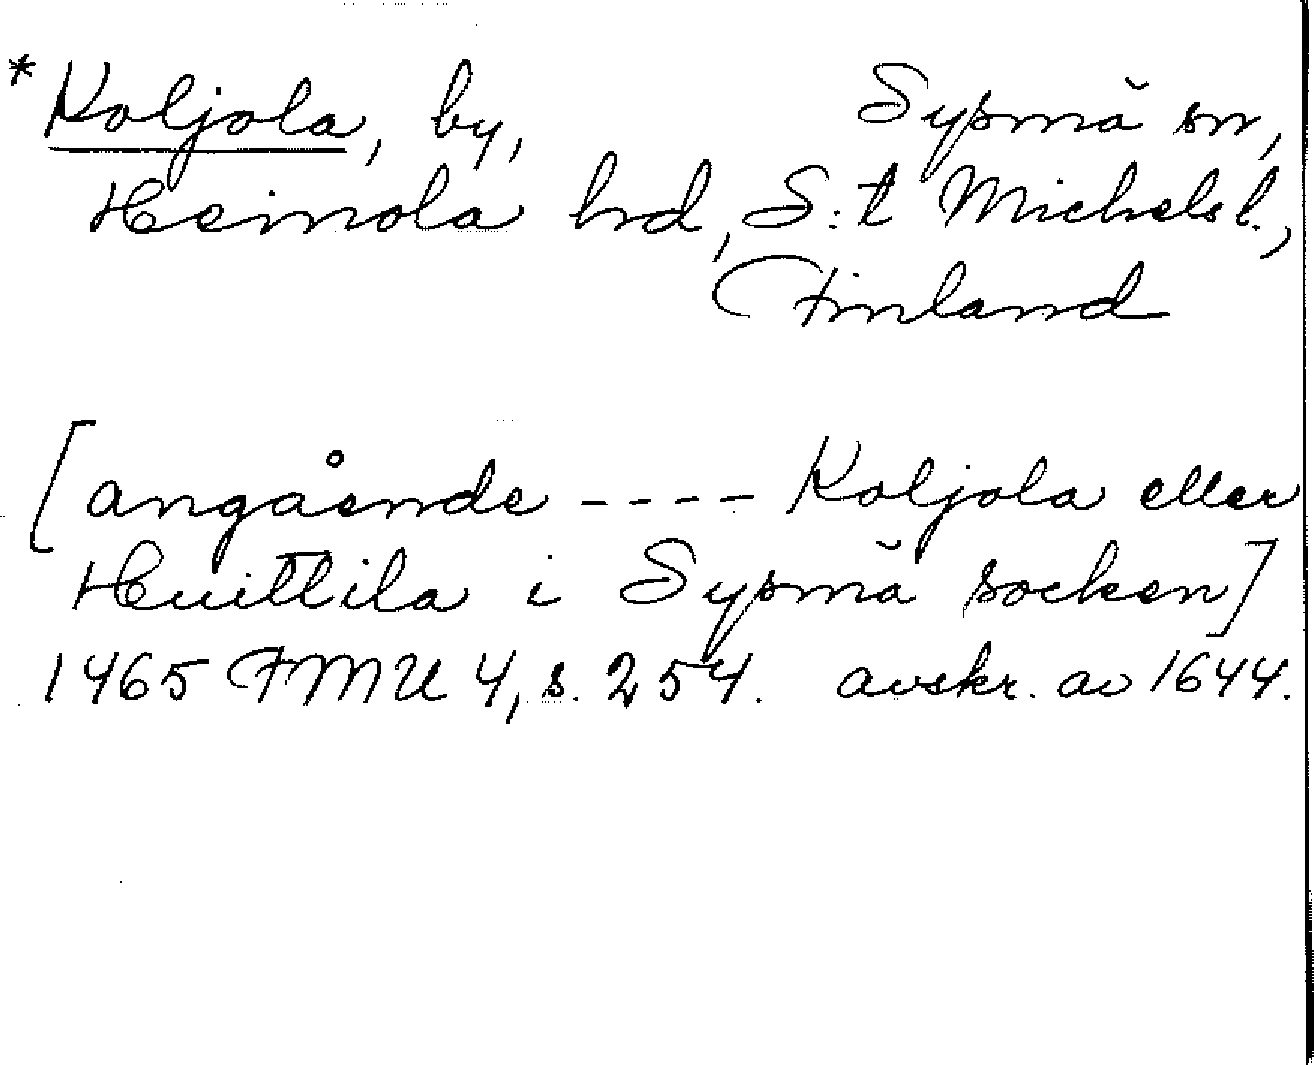 *Koljola, by, Sysmä sn,
Heinola hd, S:t Michels l.,
Finland
[angående ---- Koljola eller
Huittila i Sysmä socken]
1465 FMU 4, s. 254. avskr. av 1644.